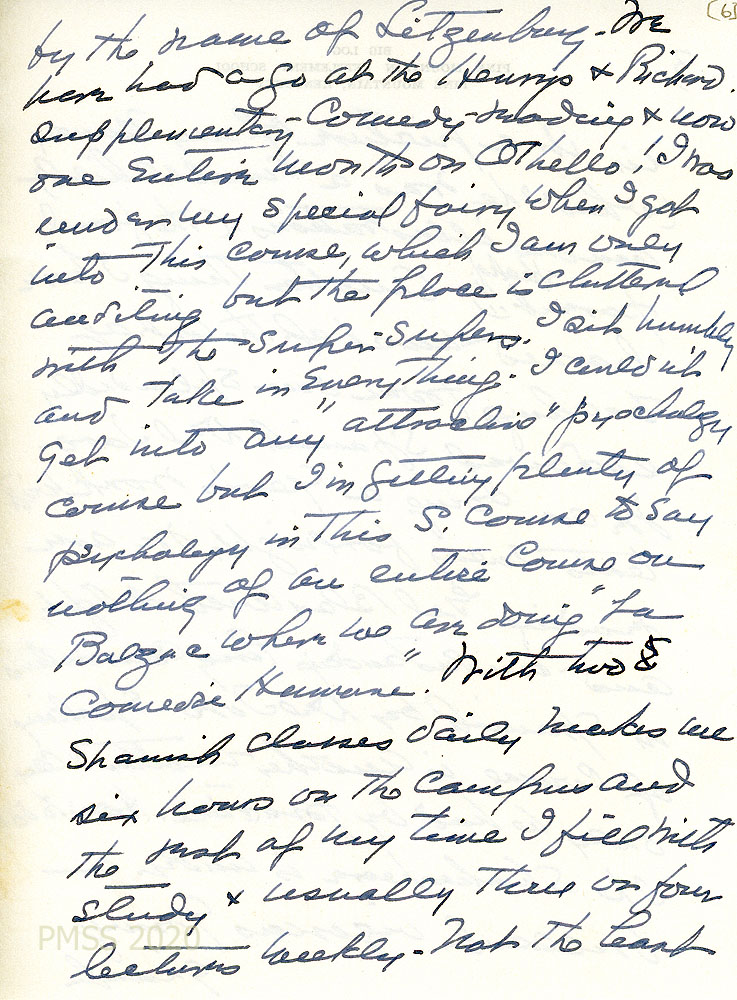 [6]
by the name of Litzenburg - We
have had a go at the Henrys & Richard.
Supplementary - Comedy - reading & now
one Entire month on Othello! I was
under my special fairy when I got
into This course, which I am only
auditing but the place is cluttered
with the Super-Supers. I sit humbly
and take in Everything. I couldn't
get into any "attractive" psychology
course but I'm getting plenty of
psychology in this S. Course to say
nothing of an entire Course on
Balzac where we are doing "La
Comedie Humane". With two
Spanish classes daily makes me
six hours on the campus and
the rest of my time I fill with
study & usually three or four
lectures weekly - Not the least
PMSS 2020